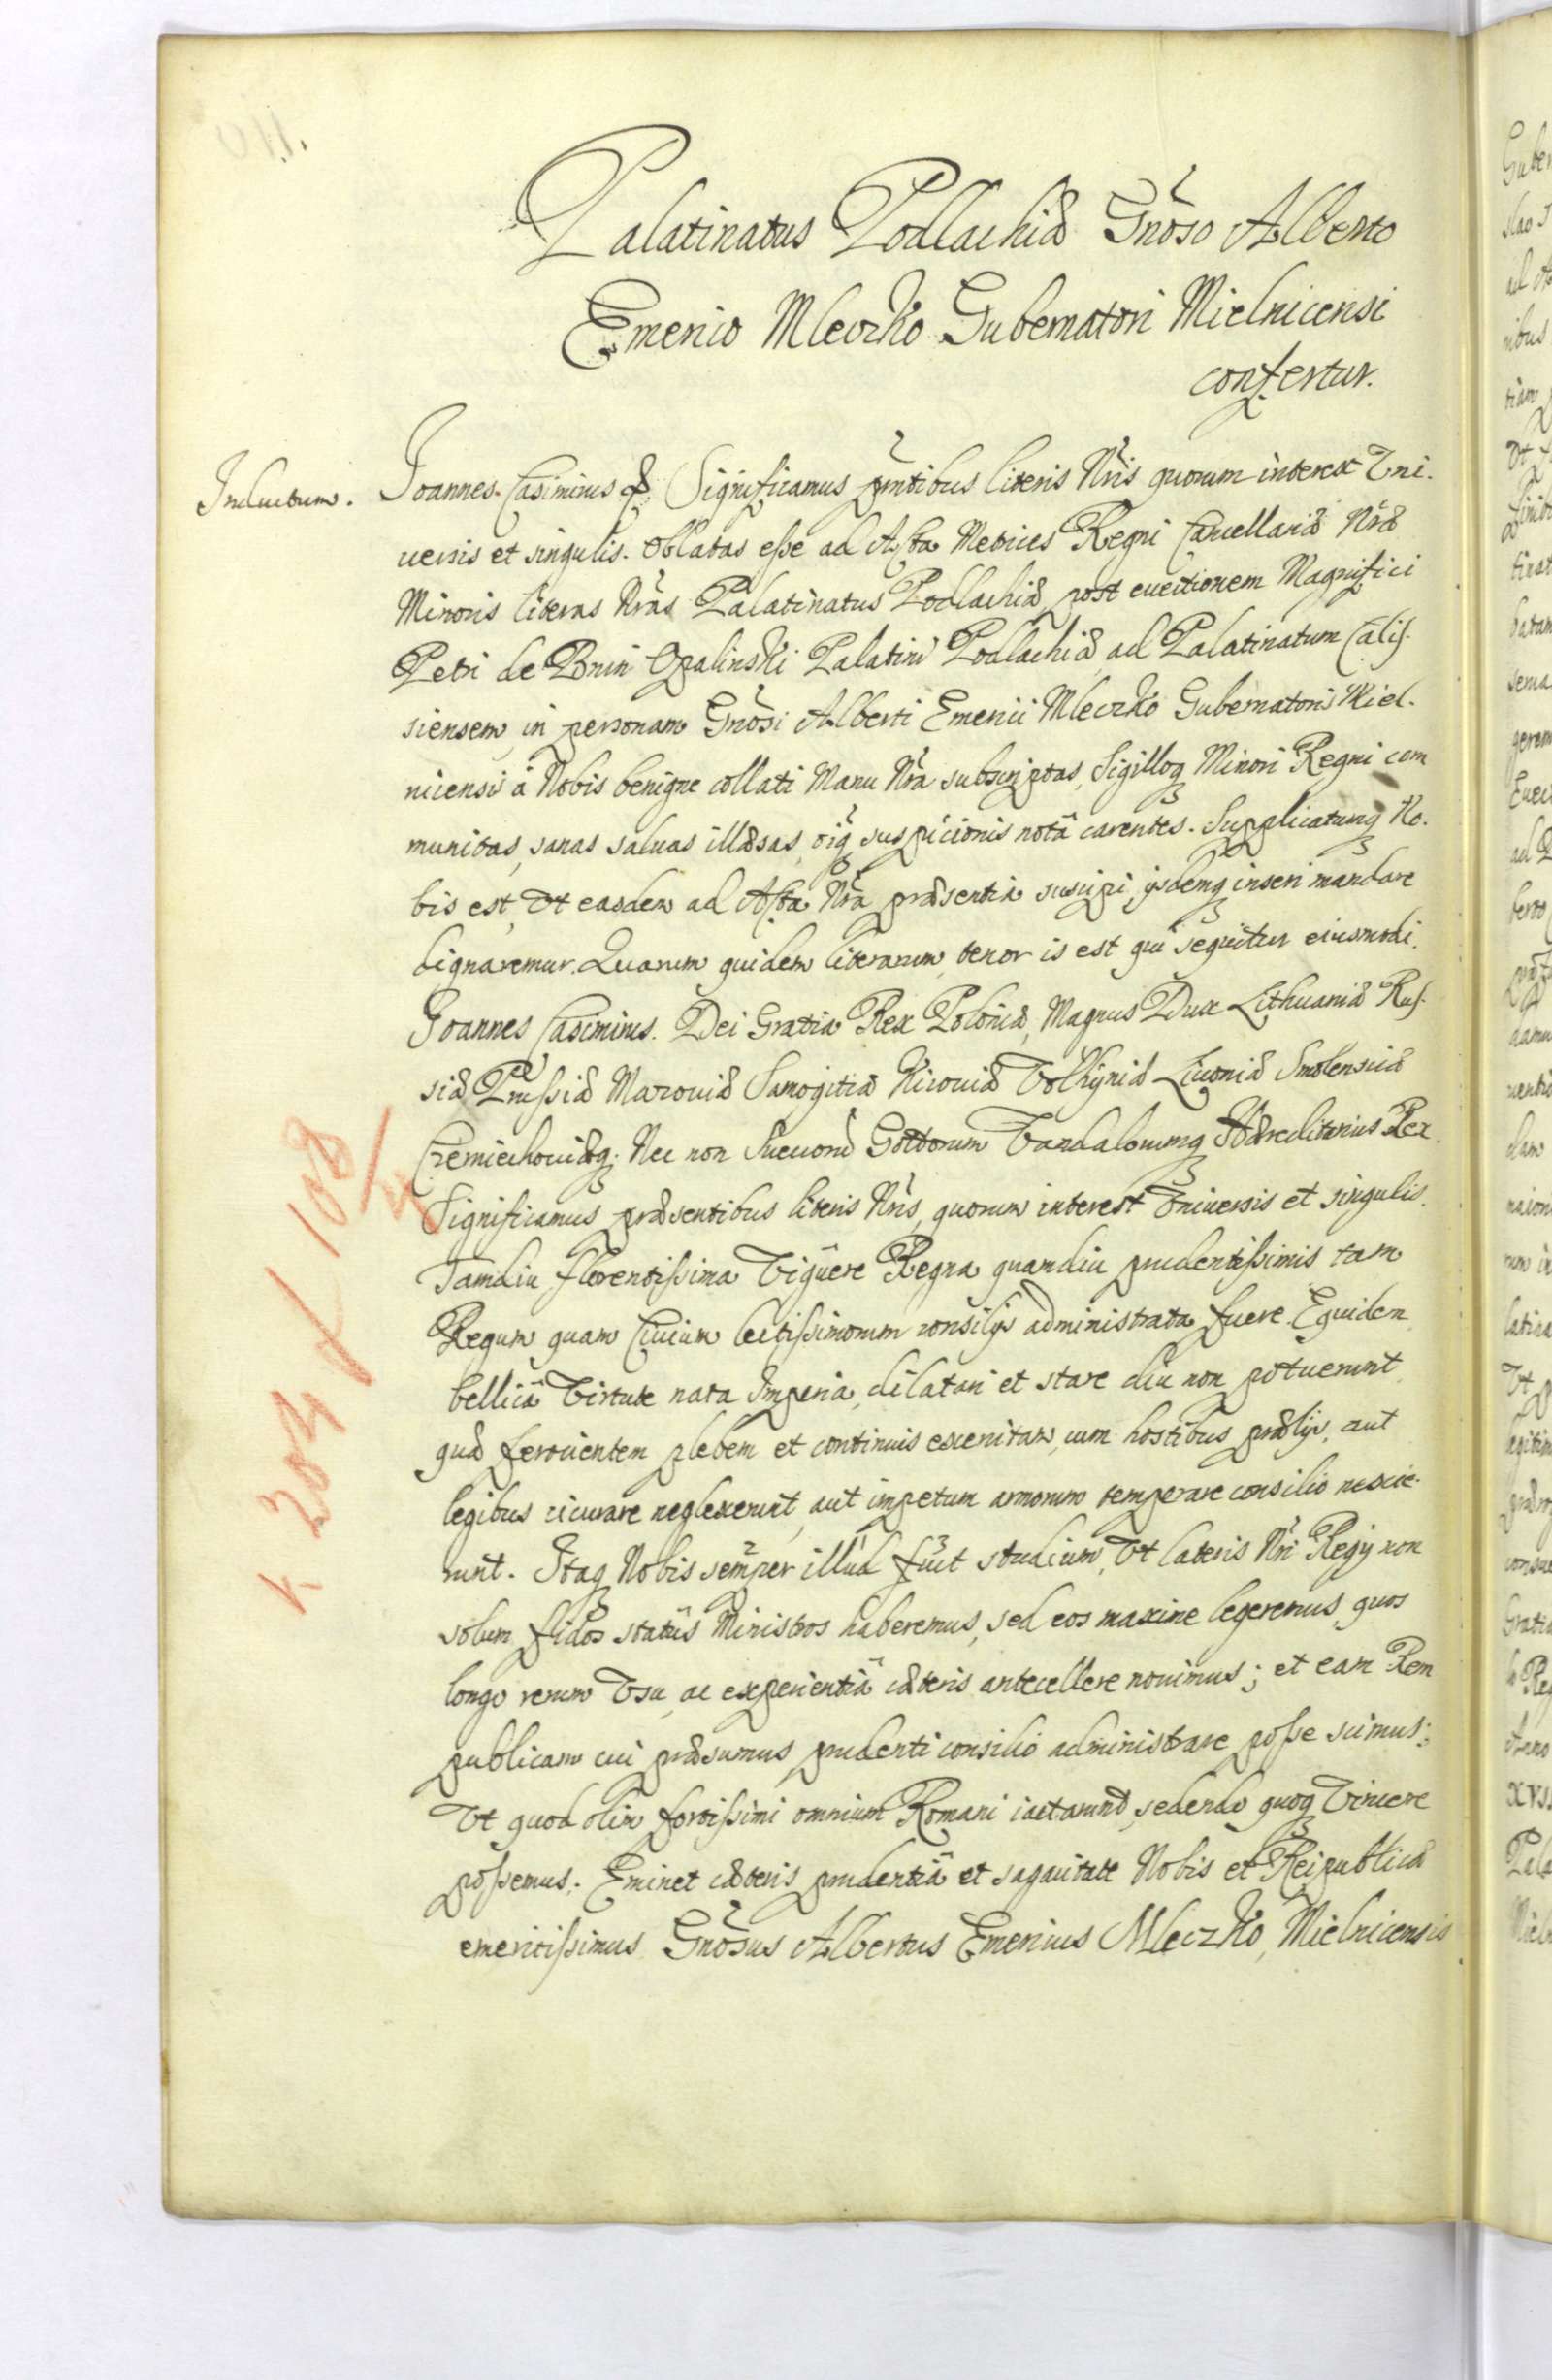 Palatinatus Podlachiæ Gnõso Alberto
Emerico Mleczko Gubernatori Mielnicensi
confertur.
Inductum.
Joannes Casimirus & Significamus pñtibus literis Nr̃is quorum interest Vni-
uersis et singulis. Oblatas esse ad Acta Metrices Regni Cancellariæ Nr̃æ
Minoris literas Nr̃as Palatinatus Podlachiæ post euectionem Magnifici
Petri de Bnin Opalinski Palatini Podlachiæ, ad Palatinatum Calis-
siensem, in personam Gnõsi Alberti Emerici Mleczko Gubernatoris Miel-
nicensis â Nobis benigne collati Manu Nr̃a subscriptas, Sigilloq Minori Regni com
munitas, sanas saluas illæsas, oi͠q suspicionis notâ carentes. Supplicatumq No-
bis est, Vt easdem ad Acta Nr̃a præsentia suscipi, ijsdemq inseri mandare
dignaremur. Quarum quidem literarum, tenor is est qui sequitur eiusmodi.
Joannes Casimirus. Dei Gratia Rex Poloniæ, Magnus Dux Lithuaniæ Rus-
siæ Prussiæ Mazouiæ Samogitiæ Kiiouiæ Volhyniæ Liuoniæ Smolensciæ
Czerniechouiæq. Nec non Sueuorũ Gottorum Vandalorumq Hæreditarius Rex.
Significamus præsentibus literis Nr̃is, quorum interest Vniuersis et singulis.
Tamdiu florentissima Viguêre Regna quamdiu prudentissimis tam
Regum quam Ciuium lectissimorum consilijs administrata fuere. Equidem
bellicâ Virtute nata Imperia, dilatari et stare diu non potuerunt
quæ ferocientem plebem et continuis exercitam, cum hostibus prælijs, aut
legibus cicurare neglexerunt, aut impetum armorum temperare consilio nescie-
runt. Itaq Nobis semper illud fuit studium, Vt lateris Nr̃i Regij non
solum fidos statûs Ministros haberemus, sed eos maxime legeremus, quos
longo rerum Vsu, ac experientiâ cæteris antecellere nouimus; et eam Rem
publicam cui præsumus, prudenti consilio administrare posse scimus;
Vt quod olim fortissimi omnium Romani iactarunt, sedendo quoq Vincere
possemus. Eminet cæteris prudentiâ et sagacitate Nobis et Reipublicæ
emeritissimus Gnõsus Albertus Emericus Mleczko, Mielnicensis